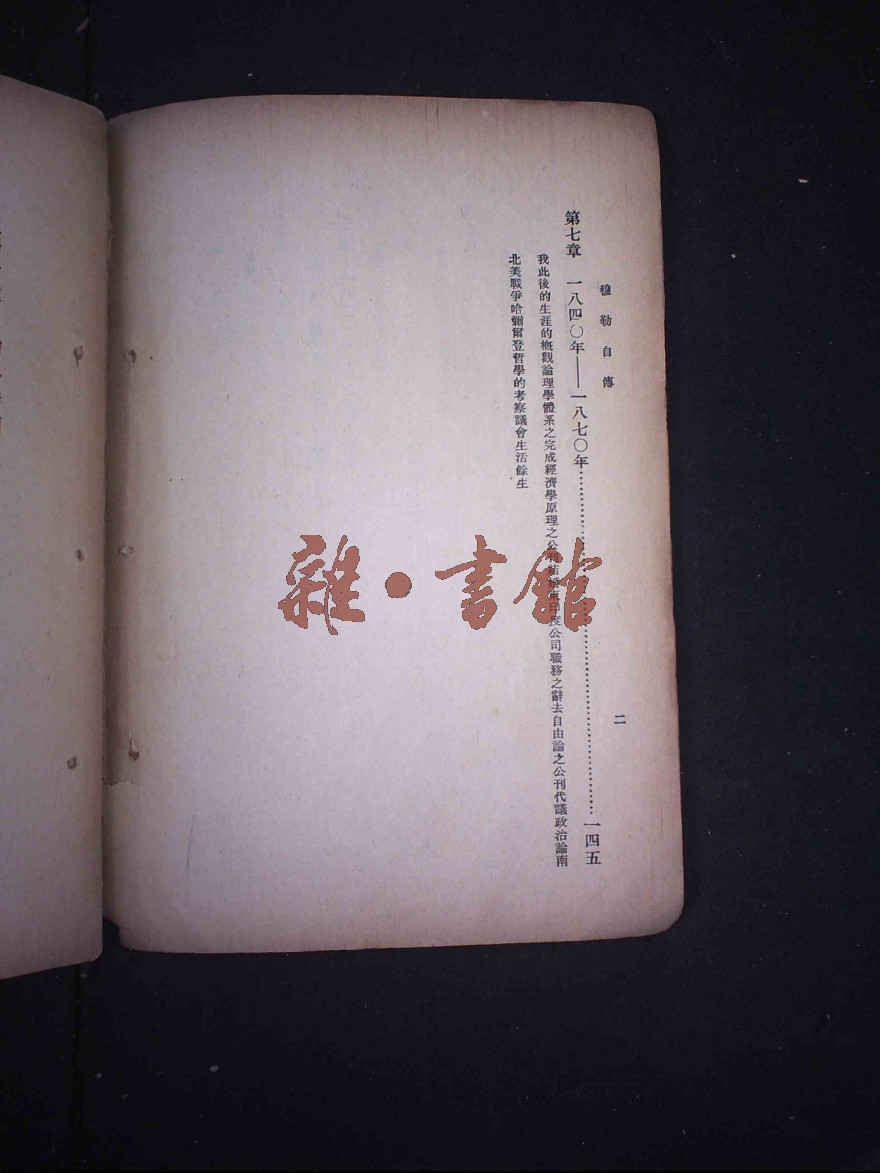 穆勒自傳
二
第七章 一八四〇年——一八七〇年……一四五
我此後的生涯的概觀論理學體系之完成經濟學原理之公刊結婚東印度公司職務之辭去自由論之公刊代議政治論南
北美戰爭哈彌爾登哲學的考察議會生活餘生
雜·書館